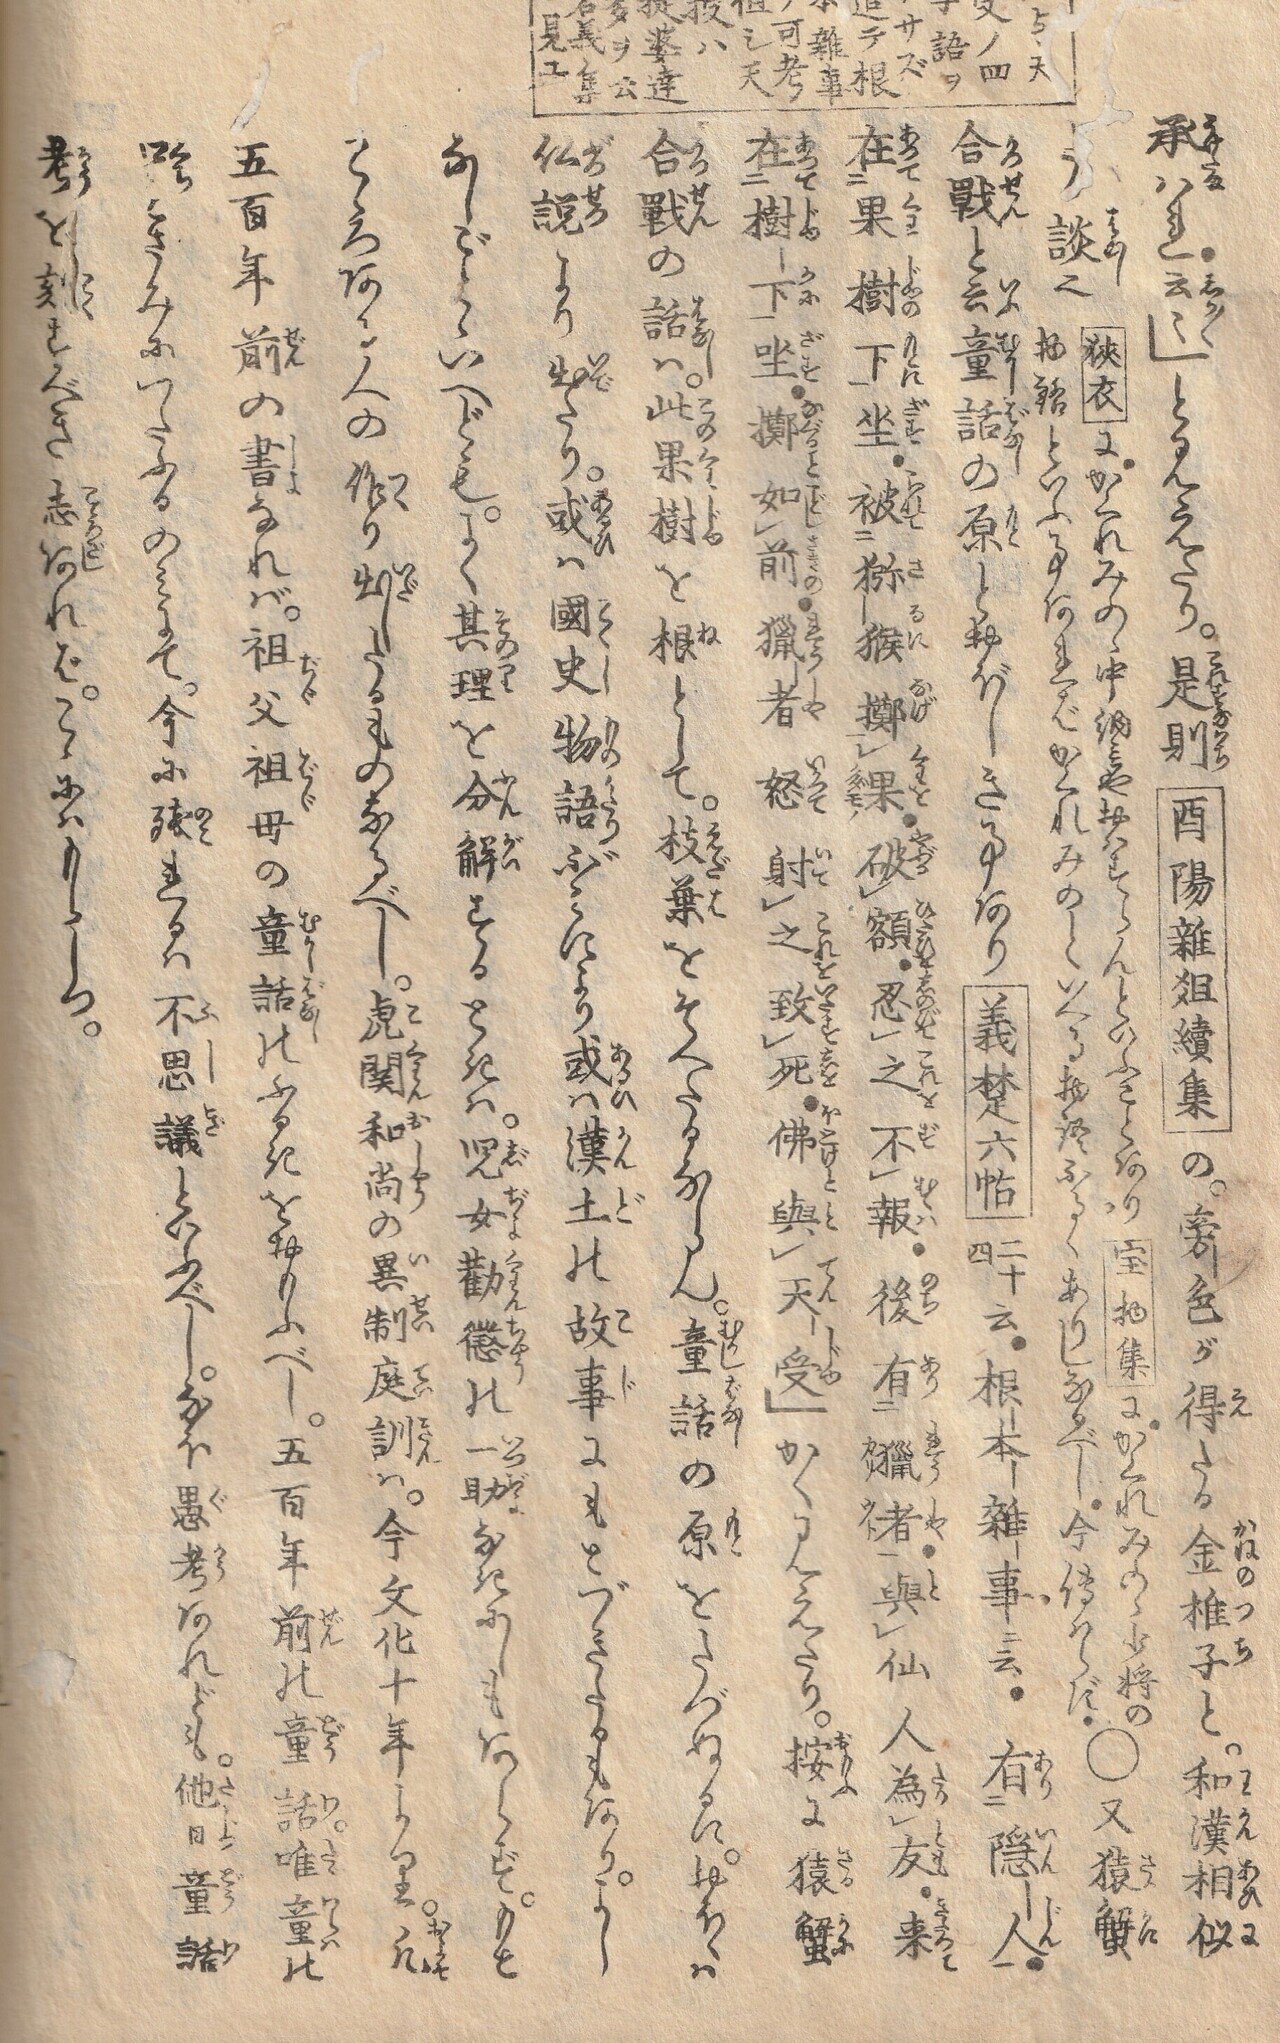 とゝ天
受ノ四
字語ヲ
ナサズ
追テ根
本雜事
ノ可考
徂シ天
授ハ
提婆達
多ヲ云
名義集
見エ
承はれ云々」と見えたり。是則酉陽雜俎續集の。旁㐌が得たる金椎子と。和漢相似
う談之
狹衣に。かくれみのゝ中納言
物語といふ事あれば。かくれみのといへる物語ふるくありしなるべし。今傳はらず。
宝物集に。かくれみのゝ少将の
○又猿蟹
合戰と云童話の原とおぼしき事あり義楚六帖二十四云。根本雜事云。有隠人
在果樹下坐。被猕猴擲果。破額。忍之不報。後有獵者與仙人為友。来
在樹下坐。擲如前。獵者怒射之致死。佛與天受」かく見えたり。按に猿蟹
合戰の話は。此果樹を根として。枝葉をそへたるなるらん。童話の原をたづぬるに。おほくは
仏説より出たり。或は國史物語ぶみにより或は漢土の故事にもとづきたるもあり。よし
なしごとゝいへども。よく其理を分解するときは。児女勸懲の一助なきにしもあらず。もと
こゝろある人の作り出したるものなるべし。虎関和尚の異制庭訓は。今文化十年より。凡
五百年前の書なれば。祖父祖母の童話のふるきをおもふべし。五百年前の童話唯童の
口ずさみにつたふるのみにて。今に残れるは不思議といふべし。なほ愚考あれども。他日童話
考を刻すべき志あれば。こゝにはもらしつ。